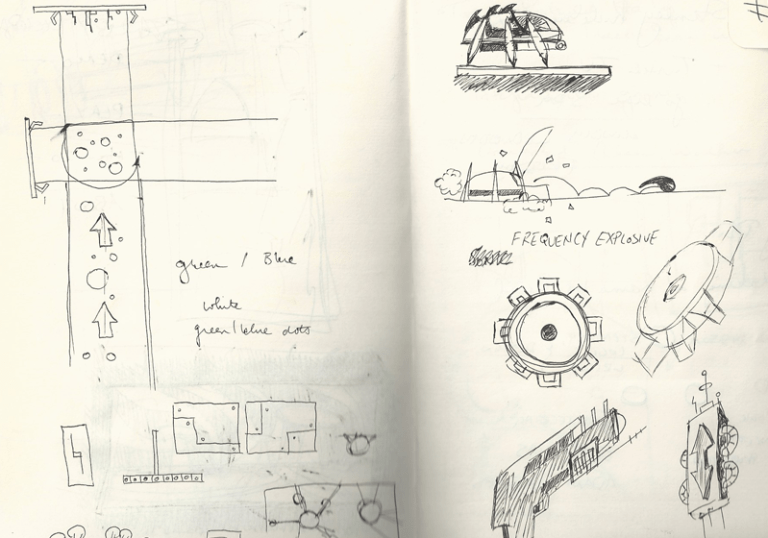 green / Blue
white
green/blue dots
FREQUENCY EXPLOSIVE